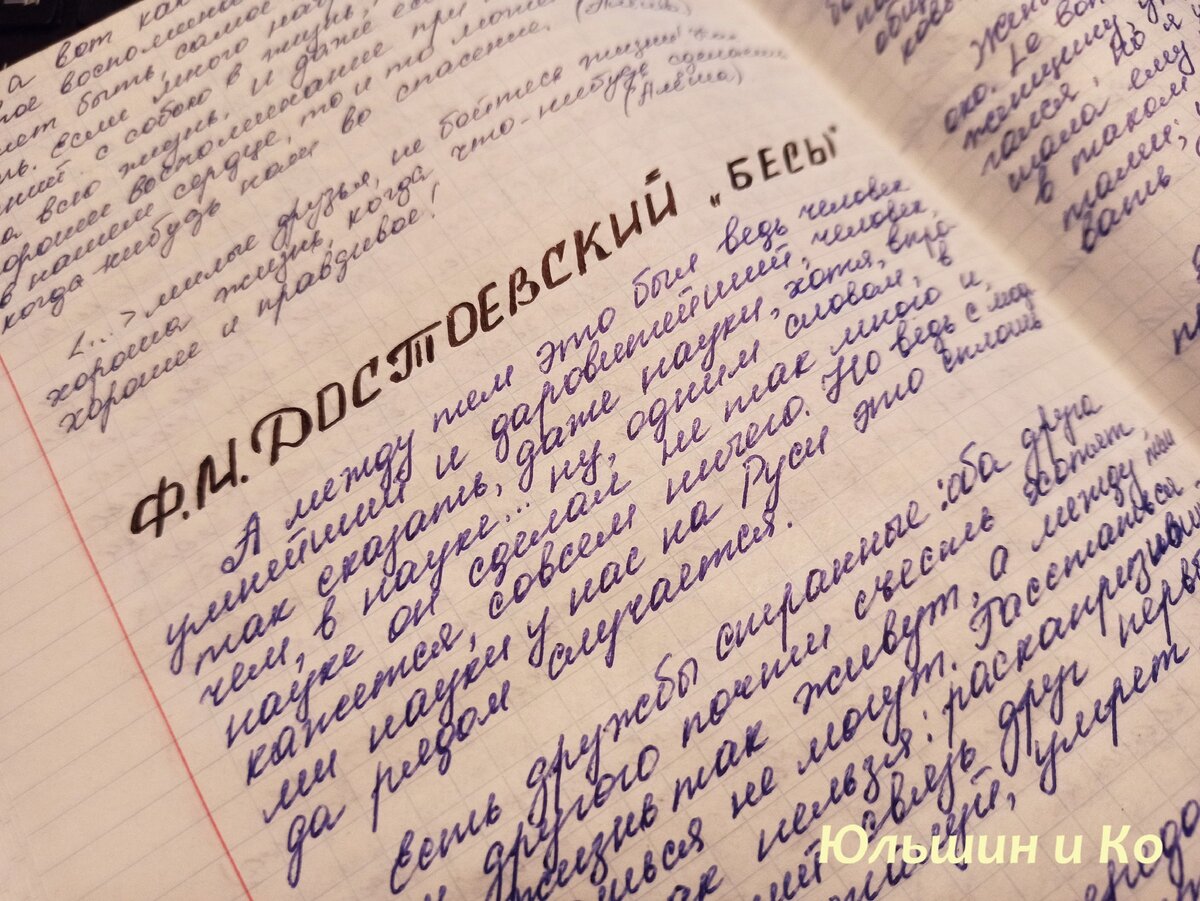 а вот как
воспомина
ет быть, самое
ть. Если много на
ний с собою в жизнь,
а всю жизнь. И даже ес
хорошее воспоминание при
в нашем сердце, то и то може
когда нибудь нам во спасение. (Алёша)
<...> милые друзья, не бойтесь жизни! Как
хороша жизнь, когда что-нибудь сделаешь
хорошее и правдивое! (Алёша)
Ф.М. ДОСТОЕВСКИЙ „БЕСЫ"
А между тем это был ведь человек
умнейший и даровитейший, человек,
так сказать, даже науки, хотя, впро
чем, в науке... ну, одним словом, в
науке он сделал не так много и,
кажется, совсем ничего. Но ведь с людь
ми науки у нас на Руси это сплошь
да рядом случается.
Есть дружбы странные: оба друга
один другого почти съесть хотят,
всю жизнь так живут, а между тем
расстаться не могут. Расстаться
так нельзя: раскапризив
связь друг перв
умрет,
Жен
око. Le
женщину, у
гался, Но я
шала ему
в таком
вать
Юльшин и Ко